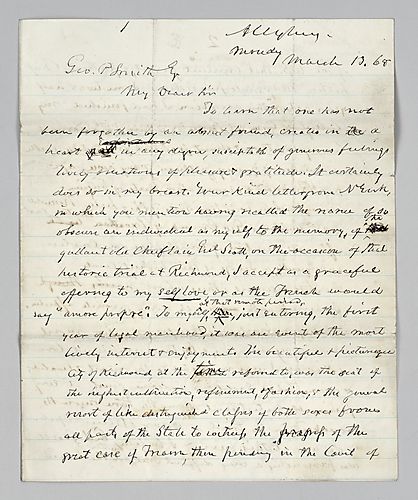 Allegheny.
Monday
March 13. 65
Geo. P. Smith Esq
My Dear Sir
To learn that one has not
been forgotten by an absent friend, creates in the a
heart in any degree, susceptible of generous feelings
lively emotions of pleasure & gratitude. It certainly
does so in my breast. Your kind letter from N York,
in which you mention having recalled the name of so
obscure an individual as myself to the memory, of the
gallant old Chieftain Genl Scott, on the occasion of the
historic trial at Richmond, I accept as a graceful
offering to my self love or as the French would
say "amore propre". To myself
at that remote period,
just entering, the first
year of legal manhood, it was an event of the most
lively interest & enjoyment. The beautiful & picturesque
City of Richmond, at the time referred to, was the seat of
the highest cultivation, refinement, & fashion, & the general
resort of the distinguished classes of both sexes from
all parts of the State to witness the progress of the
great case of Treason, then pending in the Court of